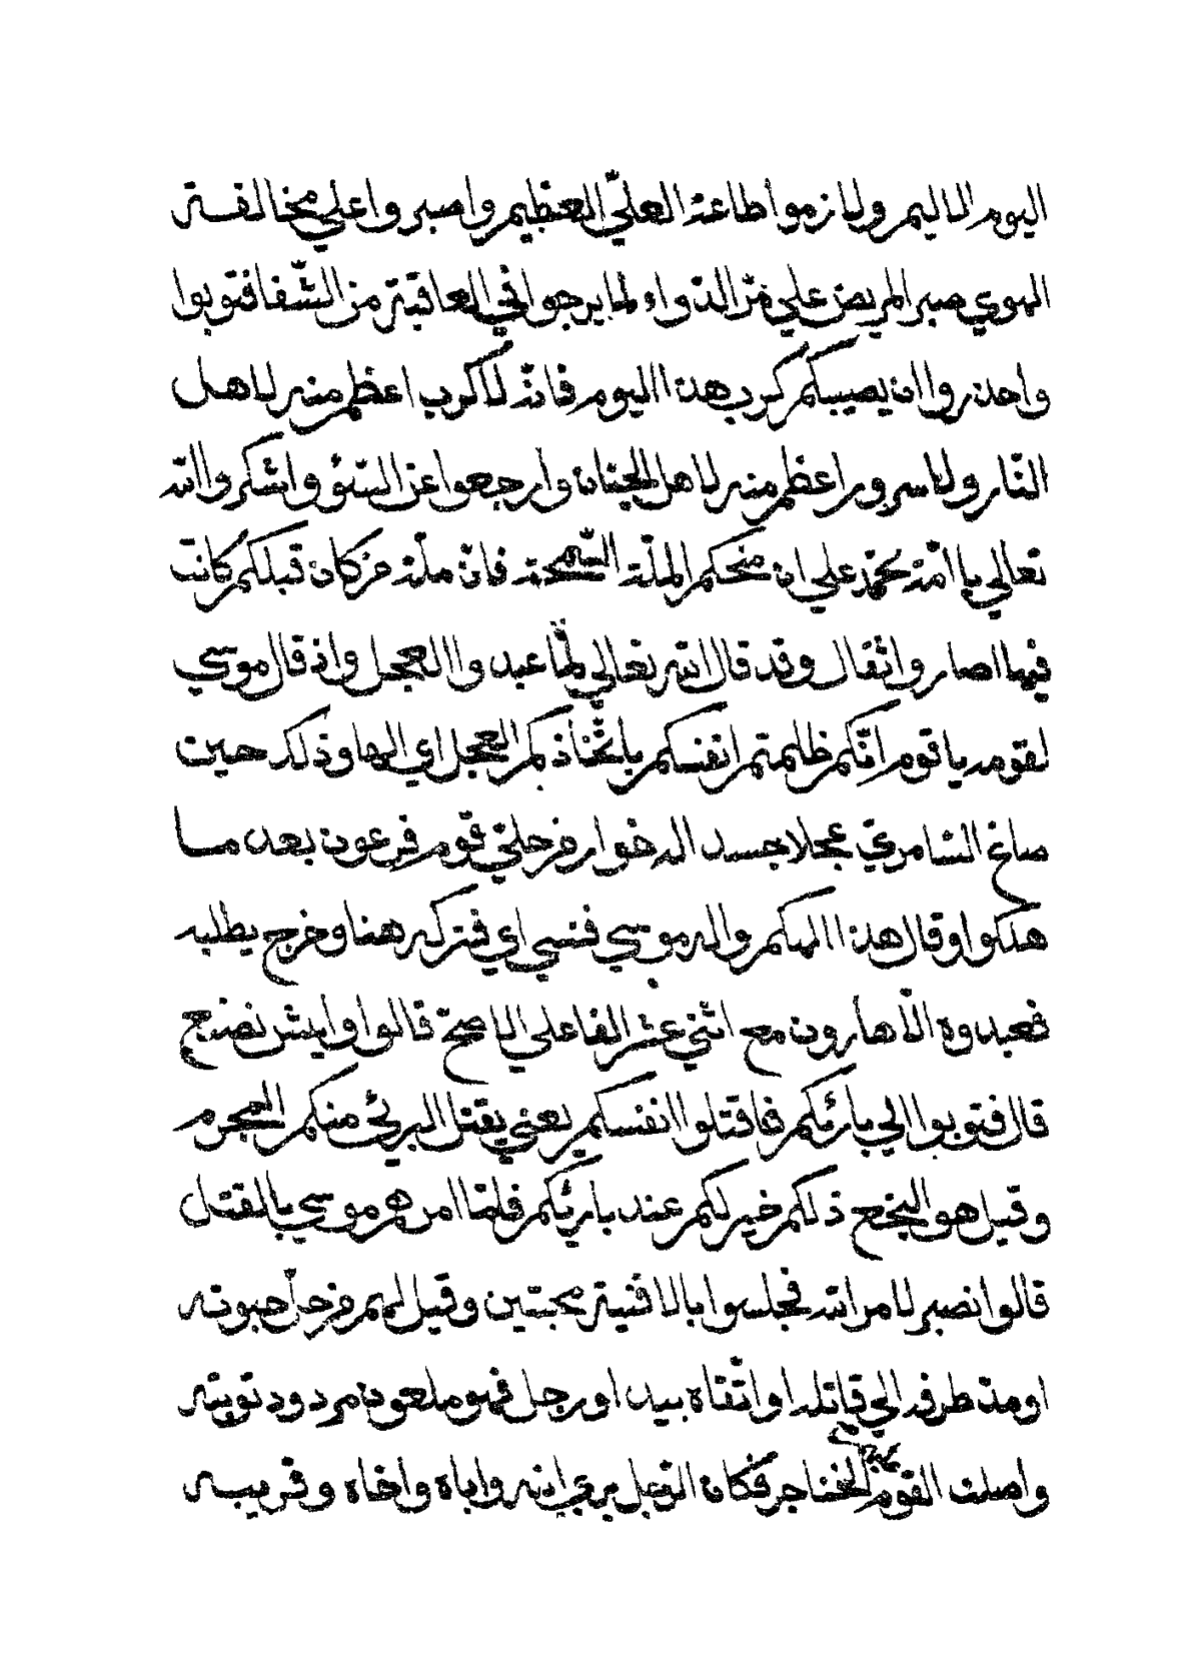 اليوم الاليم ولازموا طاعة العليّ العظيم واصبروا علي مخالفة
الهوي صبر المريض علي مرّ الدّواء لما يرجوا في العاقبة من الشّفا فتوبوا
واحذروا ان يصيبكم كرب هذا اليوم فانّه لا كرب اعظم منه لاهل
النّار ولا سرور اعظم منه لاهل الجنان وارجعوا عن السّئو واشكروا الله
تعالي يا امّة محمّد علي ان منحكم الملّة السّمحة فانّ ملّة من كان قبلكم كانت
فيها اصار واثقال وقد قال الله تعالي لمّا عبدوا العجل واذ قال موسي
لقومه يا قوم انّكم ظلمتم انفسكم باتّخاذكم العجل اي الها وذلك حين
صاغ السّامريّ عجلا جسدا له خوار من حليّ قوم فرعون بعد ما
هلكوا وقال هذا الهكم واله موسي فنسي اي فتركه هنا وخرج يطلبه
فعبدوه الّا هارون مع اثني عشر الفا علي الاصحّ قالوا وايش نصنع
قال فتوبوا الي بارئكم فاقتلوا انفسكم يعني يقتل البرئ منكم المجرم
وقيل هو البخع ذلكم خير لكم عند بارئكم فلمّا امرهم موسي بالقتل
قالوا نصبر لامر الله فجلسوا بالافنية محتبين وقيل لهم من حلّ حبوته
او مدّ طرفه الي قاتله او اتّقاه بيد او رجل فهو ملعون مردود توبته
واصلت القوم عليهم الخناجر فكان الرّجل يري ابنه واباه واخاه وقريبه